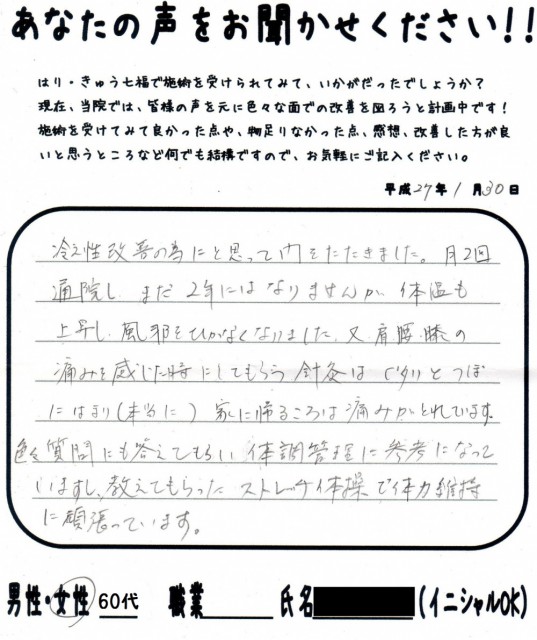 あなたの声をお聞かせください!!
はり・きゅう七福で施術を受けられてみて、いかがだったでしょうか?
現在、当院では、皆様の声を元に色々な面での改善を図ろうと計画中です!
施術を受けてみて良かった点や、物足りなかった点、感想、改善した方が良
いと思うところなど何でも結構ですので、お気軽にご記入ください。
平成27年1月30日
冷え性改善の為にと思って門をたたきました。月2回
通院し まだ2年にはなりませんが、体温も
上昇し、風邪をひかなくなりました。又 肩、腰、膝の
痛みを感じた時にしてもらう 針灸は ぐターリと つぼ
にはまり(本当に) 家に帰るころは痛みがとれています。
色々質問にも答えてもらい 体調管理に参考になって
いますし、教えてもらった ストレッチ体操で体力維持
に頑張っています。
男性・女性 60代 職業 氏名 (イニシャルOK)